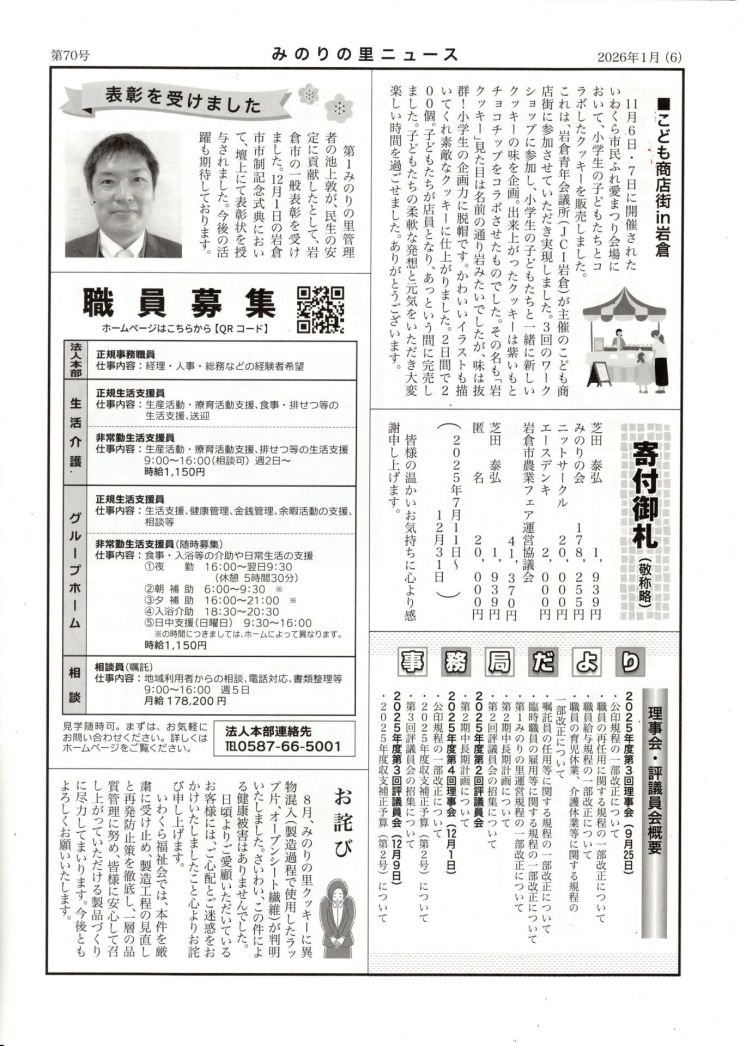 第70号
みのりの里ニュース
2026年1月 (6)
■こども商店街in岩倉
11月6日・7日に開催された
いわくら市民ふれ愛まつり会場に
おいて、小学生の子どもたちとコ
ラボしたクッキーを販売しました。
これは、岩倉青年会議所(JCI岩倉)が主催のこども商
店街に参加させていただき実現しました。3回のワーク
ショップに参加し、小学生の子どもたちと一緒に新しい
クッキーの味を企画。出来上がったクッキーは紫いもと
チョコチップをコラボさせたものでした。その名も「岩
クッキー」見た目は名前の通り岩みたいでしたが、味は抜
群!小学生の企画力に脱帽です。かわいいイラストも描
いてくれ素敵なクッキーに仕上がりました。2日間で2
00個。子どもたちが店員となり、あっという間に完売し
ました。子どもたちの柔軟な発想と元気をいただき大変
楽しい時間を過ごせました。ありがとうございます。
表彰を受けました
第1みのりの里管理
者の池上敦が、民生の安
定に貢献したとして、岩
倉市の一般表彰を受け
ました。12月1日の岩倉
市市制記念式典におい
て、壇上にて表彰状を授
与されました。今後の活
躍も期待しております。
職員募集
ホームページはこちらから【QRコード】
法人本部
正規事務職員
仕事内容:経理・人事・総務などの経験者希望
生活介護
正規生活支援員
仕事内容:生産活動・療育活動支援、食事・排せつ等の
生活支援、送迎
非常勤生活支援員
仕事内容:生産活動・療育活動支援、排せつ等の生活支援
9:00～16:00(相談可) 週2日～
時給1,150円
グループホーム
正規生活支援員
仕事内容:生活支援、健康管理、金銭管理、余暇活動の支援、
相談等
非常勤生活支援員(随時募集)
仕事内容:食事・入浴等の介助や日常生活の支援
①夜 勤 16:00～翌日9:30
(休憩 5時間30分)
②朝 補 助 6:00～9:30 ※
③夕 補 助 16:00～21:00 ※
④入浴介助 18:30～20:30
⑤日中支援(日曜日) 9:30～16:00
※の時間につきましては、ホームによって異なります。
時給1,150円
相談
相談員(嘱託)
仕事内容:地域利用者からの相談、電話対応、書類整理等
9:00～16:00 週5日
月給 178,200円
見学随時可。まずは、お気軽に
お問い合わせください。詳しくは
ホームページをご覧ください。
法人本部連絡先
TEL0587-66-5001
寄付御札
(敬称略)
芝田 泰弘 1,939円
みのりの会 178,255円
ニットサークル 20,000円
エースデンキ 2,000円
岩倉市農業フェア運営協議会
41,370円
芝田 泰弘 1,939円
匿 名 20,000円
(2025年7月11日～
12月31日)
皆様の温かいお気持ちに心より感
謝申し上げます。
事務局だより
理事会・評議員会概要
2025年度第3回理事会(9月25日)
・公印規程の一部改正について
・職員の再任用に関する規程の一部改正について
・職員給与規程の一部改正について
・職員の育児休業、介護休業等に関する規程の
一部改正について
・嘱託員の任用等に関する規程の一部改正について
・臨時職員の雇用等に関する規程の一部改正について
・第1みのりの里運営規程の一部改正について
・第2期中長期計画について
・第2回評議員会の招集について
2025年度第2回評議員会
・第2期中長期計画について
2025年度第4回理事会(12月1日)
・公印規程の一部改正について
・2025年度収支補正予算(第2号)について
・第3回評議員会の招集について
2025年度第3回評議員会(12月9日)
・2025年度収支補正予算(第2号)について
お詫び
8月、みのりの里クッキーに異
物混入(製造過程で使用したラッ
プ片、オーブンシート繊維)が判明
いたしました。さいわい、この件によ
る健康被害はありませんでした。
日頃よりご愛顧いただいている
お客様には、ご心配とご迷惑をお
かけいたしましたこと心よりお詫
び申し上げます。
いわくら福祉会では、本件を厳
粛に受け止め、製造工程の見直し
と再発防止策を徹底し、一層の品
質管理に努め、皆様に安心して召
し上がっていただける製品づくり
に尽力してまいります。今後とも
よろしくお願いいたします。